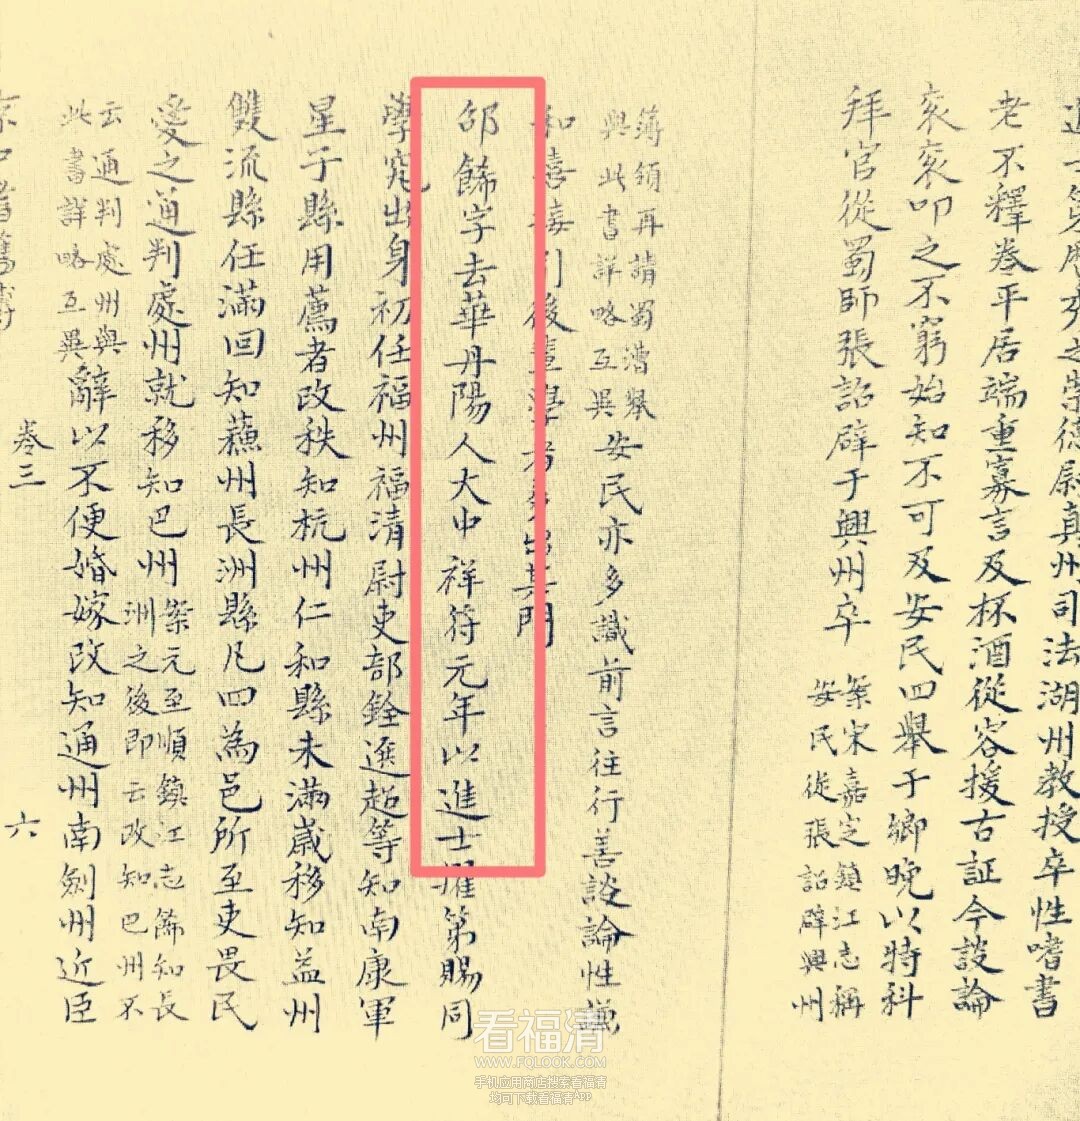 進士第歷秀之崇德尉真州司法湖州教授卒性嗜書
老不釋卷平居端重寡言及杯酒從容援古証今談論
袞袞叩之不窮始知不可及安民四舉于鄉晚以特科
拜官從蜀師張詔辟于興州卒
案宋嘉定鎮江志稱
安民從張詔辟興州
簿領再請蜀漕舉
與此書詳略互異
安民亦多識前言往行善談論性謙
和喜接引後輩學者多出其門
邵餙字去華丹陽人大中祥符元年以進士擢第賜同
學究出身初任福州福清尉吏部銓選超等知南康軍
星子縣用薦者改秩知杭州仁和縣未滿歲移知益州
雙流縣任滿回知蘓州長洲縣凡四為邑所至吏畏民
愛之通判處州就移知巴州
案元至順鎮江志餙知長
洲之後即云改知巴州不
云通判處州與
此書詳略互異
辭以不便婚嫁改知通州南劍州近臣
京口耆舊傳 卷三 六
看福清
WWW.FQLOOK.COM
手机应用商店搜索看福清
均可下载看福清App